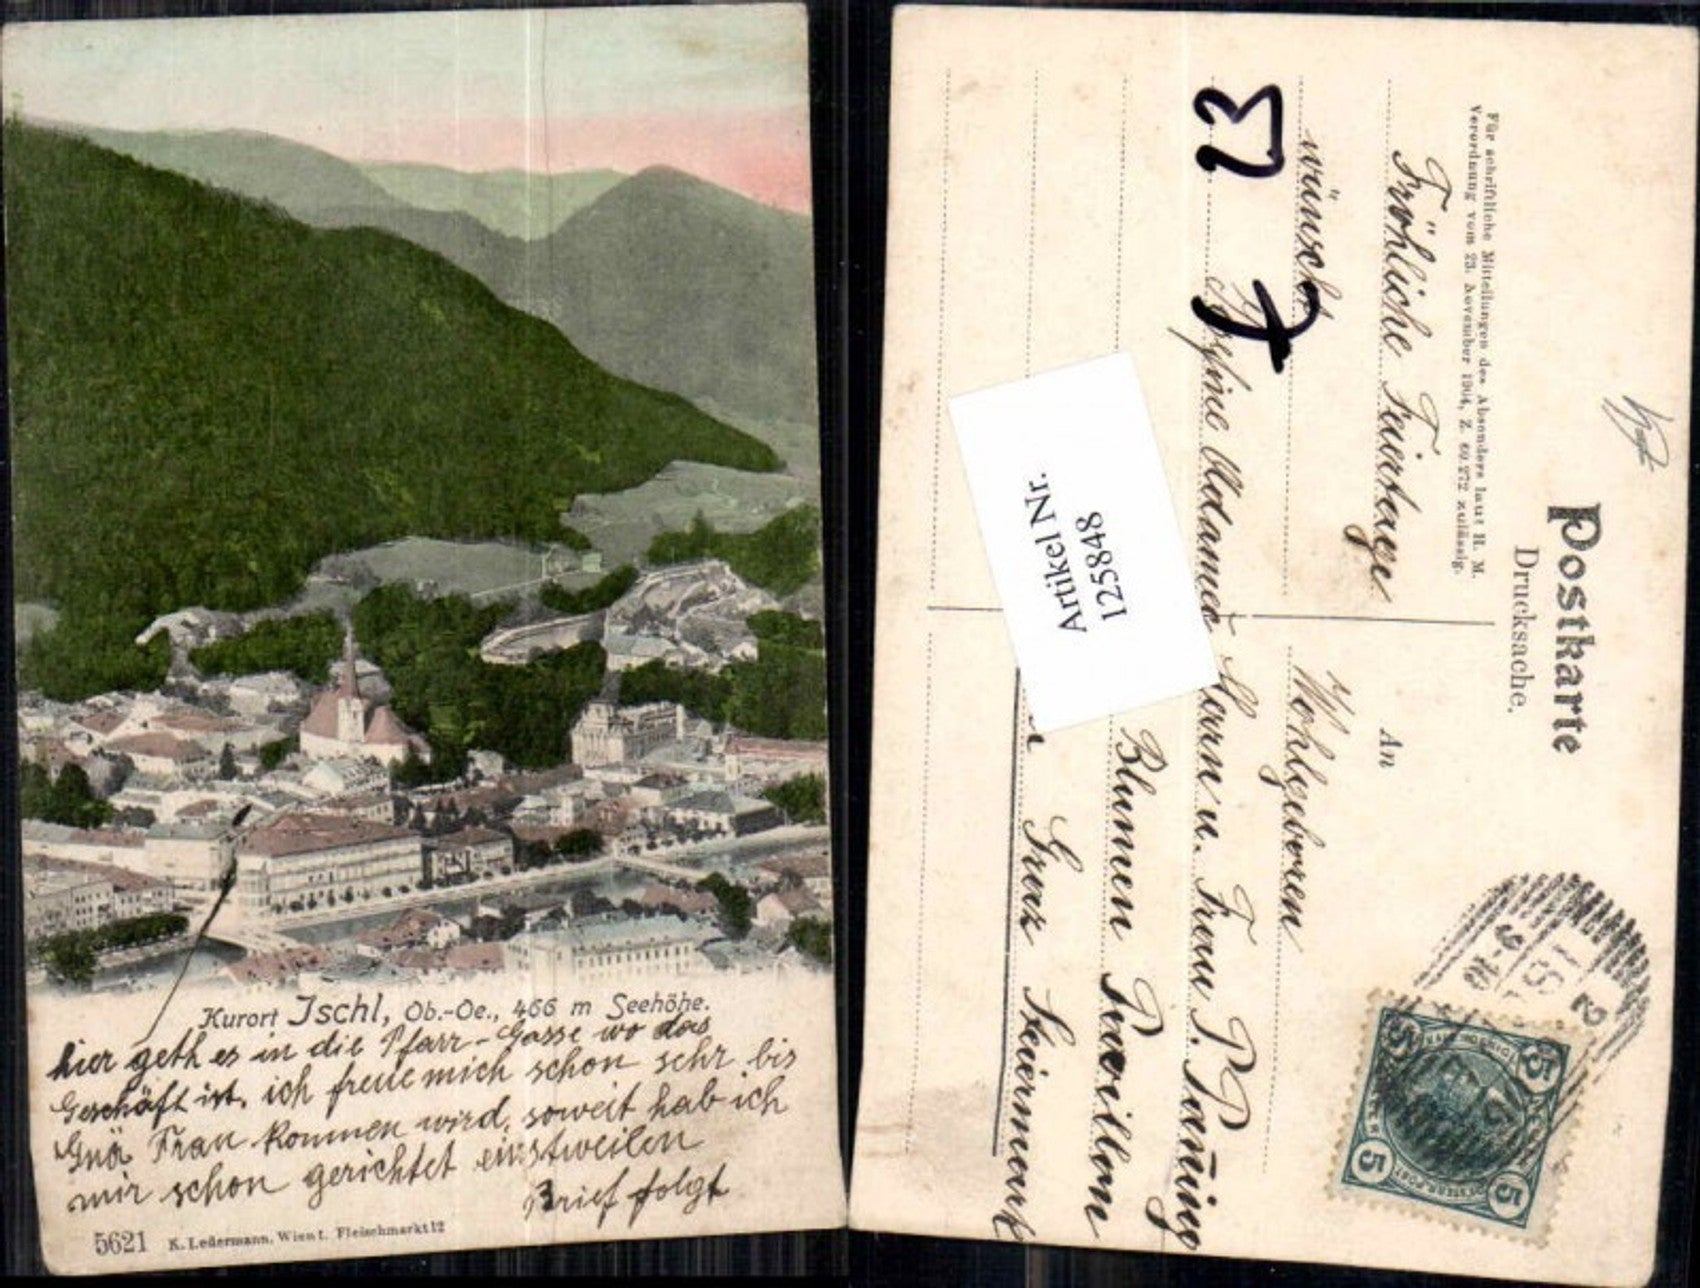 Kurort Ischl, Ob.-Oe., 466 m Seehöhe.
hier geth es in die Pfarr-Gasse wo das
Geschäft ist, ich freue mich schon sehr bis
Gnä Frau kommen wird, soweit hab ich
mir schon gerichtet einstweilen
Brief folgt
5621 K. Ledermann, Wien I. Fleischmarkt 12
Postkarte
Drucksache.
Für schriftliche Mitteilungen des Absenders laut H. M.
Verordnung vom 23. November 1904, Z. 49.772 zulässig.
Fröhliche Feiertage
wünscht
13
Artikel Nr.
1258848
An
Wohlgeboren
Herrn u. Frau
Blumen Pavillon
Graz Steiermark
5 5
5 5